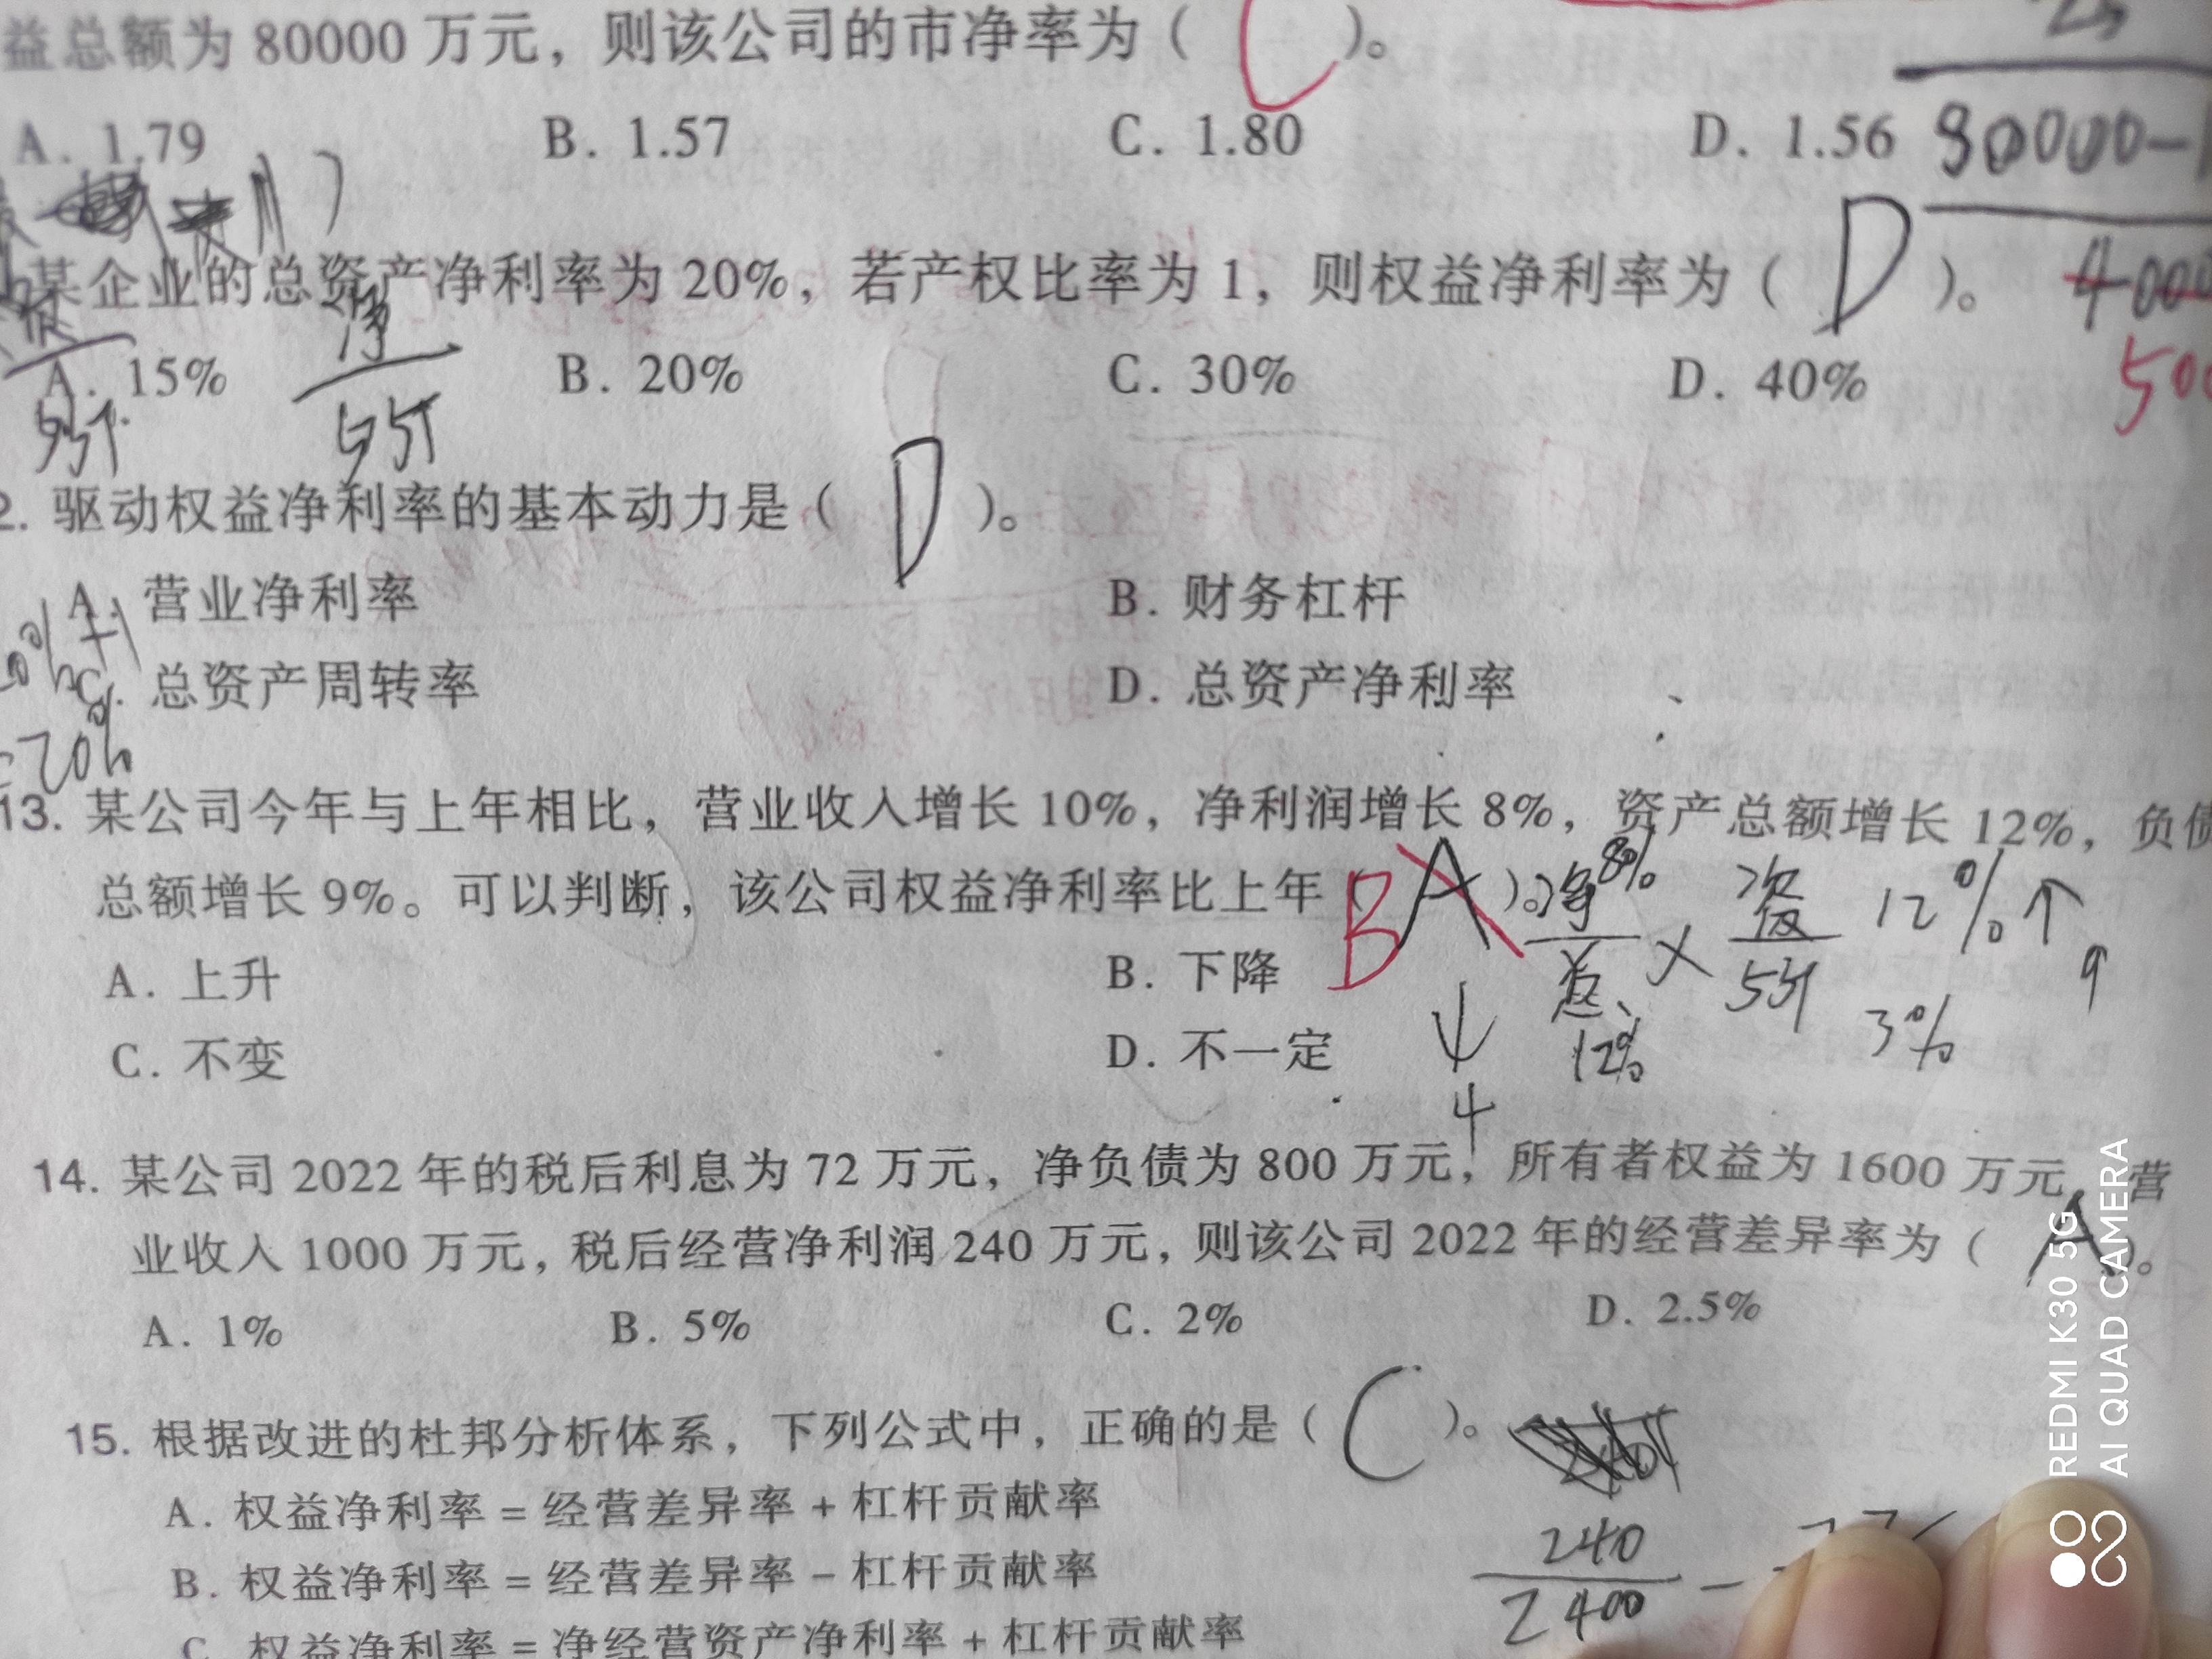 益总额为 80000 万元，则该公司的市净率为（ C ）。
A. 1.79 B. 1.57 C. 1.80 D. 1.56
80000-
某企业的总资产净利率为 20%，若产权比率为 1，则权益净利率为（ D ）。
4000
500
A. 15% B. 20% C. 30% D. 40%
净
2. 驱动权益净利率的基本动力是（ D ）。
A. 营业净利率 B. 财务杠杆
C. 总资产周转率 D. 总资产净利率
=20%
13. 某公司今年与上年相比，营业收入增长 10%，净利润增长 8%，资产总额增长 12%，负债
总额增长 9%。可以判断，该公司权益净利率比上年（ B A ）。
净 8% × 资 12% ↑ 9
总 12% 3%
A. 上升 B. 下降
C. 不变 D. 不一定
↓ 4
14. 某公司 2022 年的税后利息为 72 万元，净负债为 800 万元，所有者权益为 1600 万元，营
业收入 1000 万元，税后经营净利润 240 万元，则该公司 2022 年的经营差异率为（ A ）。
A. 1% B. 5% C. 2% D. 2.5%
15. 根据改进的杜邦分析体系，下列公式中，正确的是（ C ）。
A. 权益净利率 = 经营差异率 + 杠杆贡献率
B. 权益净利率 = 经营差异率 − 杠杆贡献率
C. 权益净利率 = 净经营资产净利率 + 杠杆贡献率
240
2400 −
REDMI K30 5G
AI QUAD CAMERA